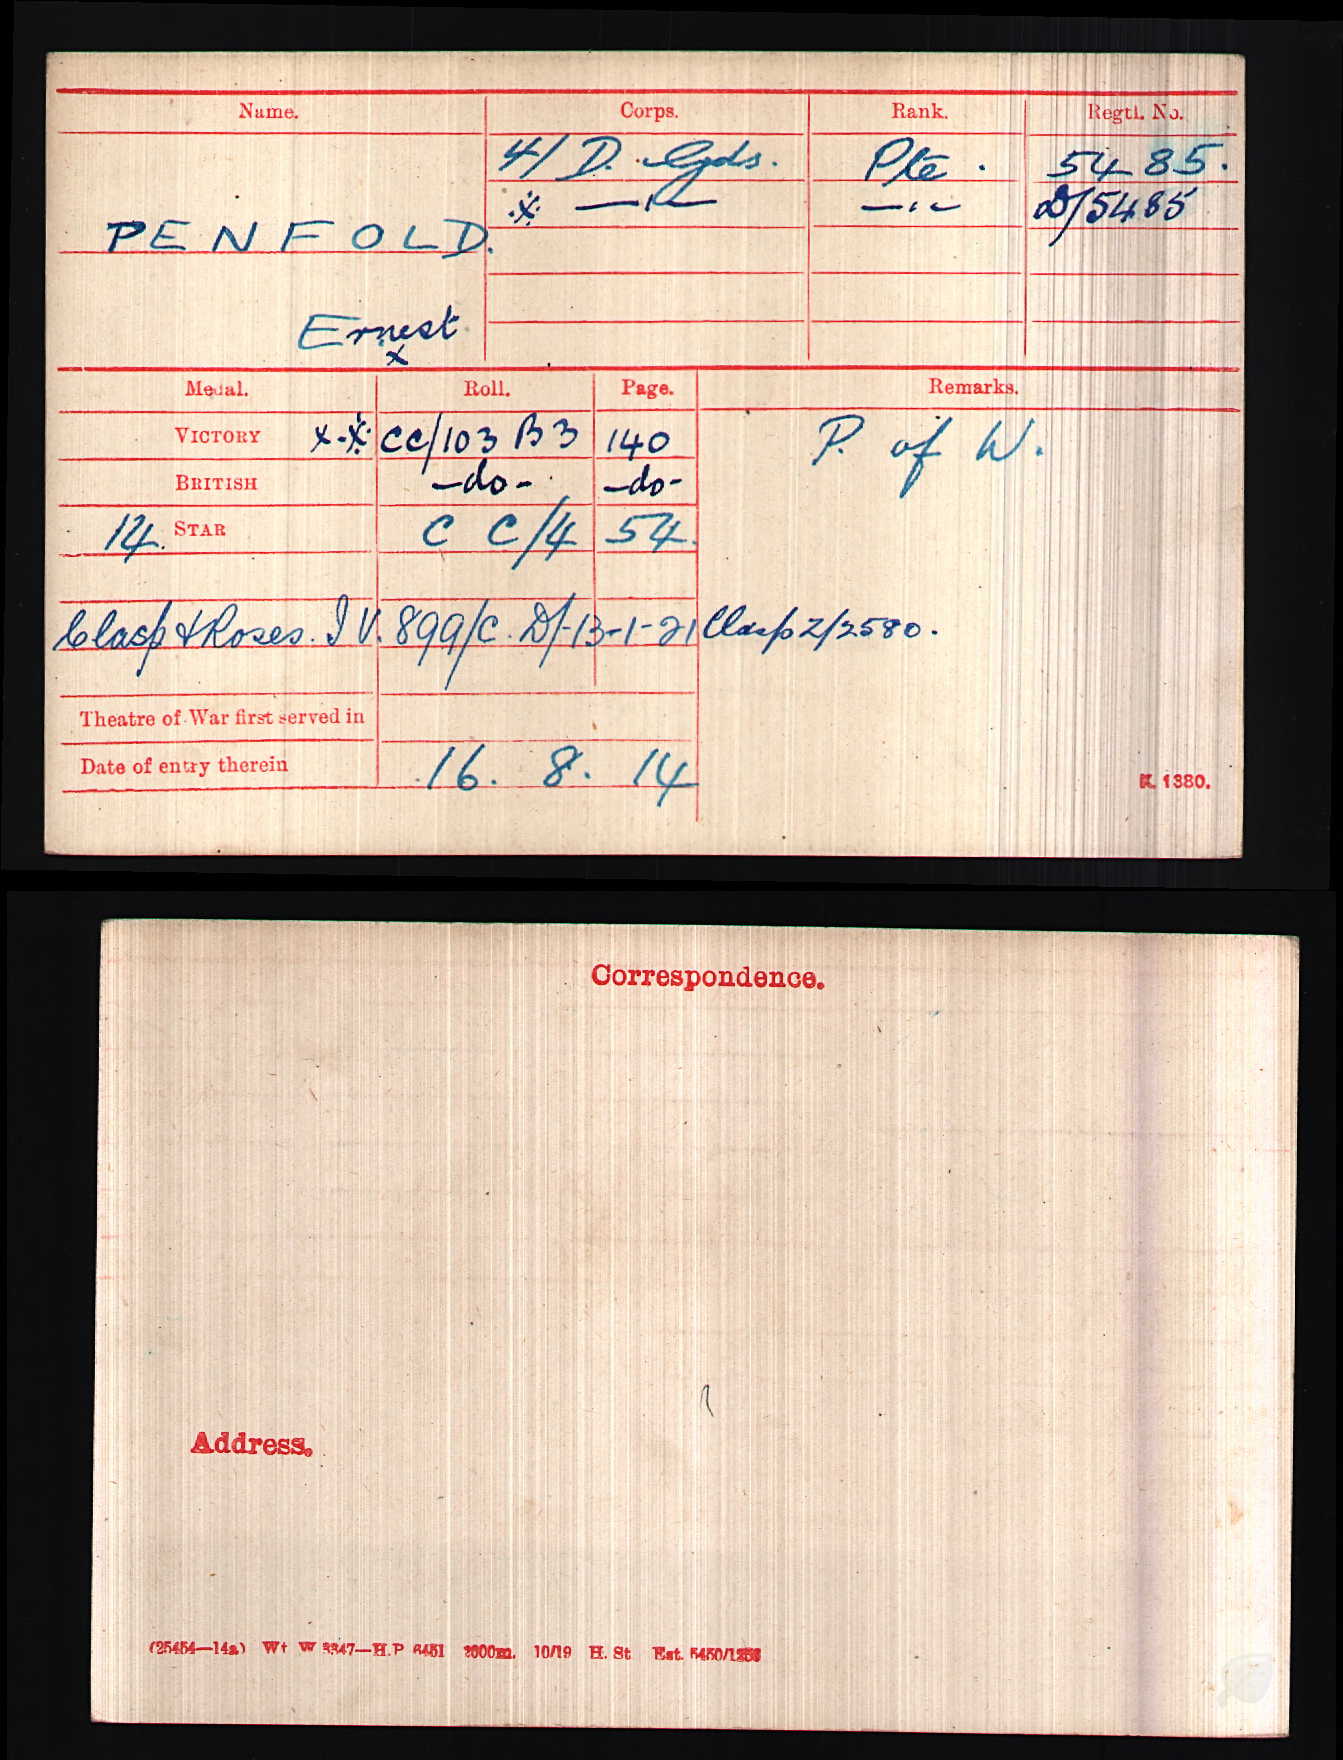 Name. Corps. Rank. Regtl. No.
4/ D. Gds. Pte. 5485.
※ —"— —"— D/5485
PENFOLD.
Ernest
x
Medal. Roll. Page. Remarks.
VICTORY x-※ CC/103 B3 140 P. of W.
BRITISH -do- -do-
14 STAR C C/4 54.
Clasp & Roses. I V. 899/C. D/-13-1-21 Clasp 2/2580.
Theatre of War first served in
Date of entry therein 16. 8. 14
K. 1380.
Correspondence.
Address.
(25454—14a) Wt W 3347—H.P 6451 2000m. 10/19 H. St Est. 5450/